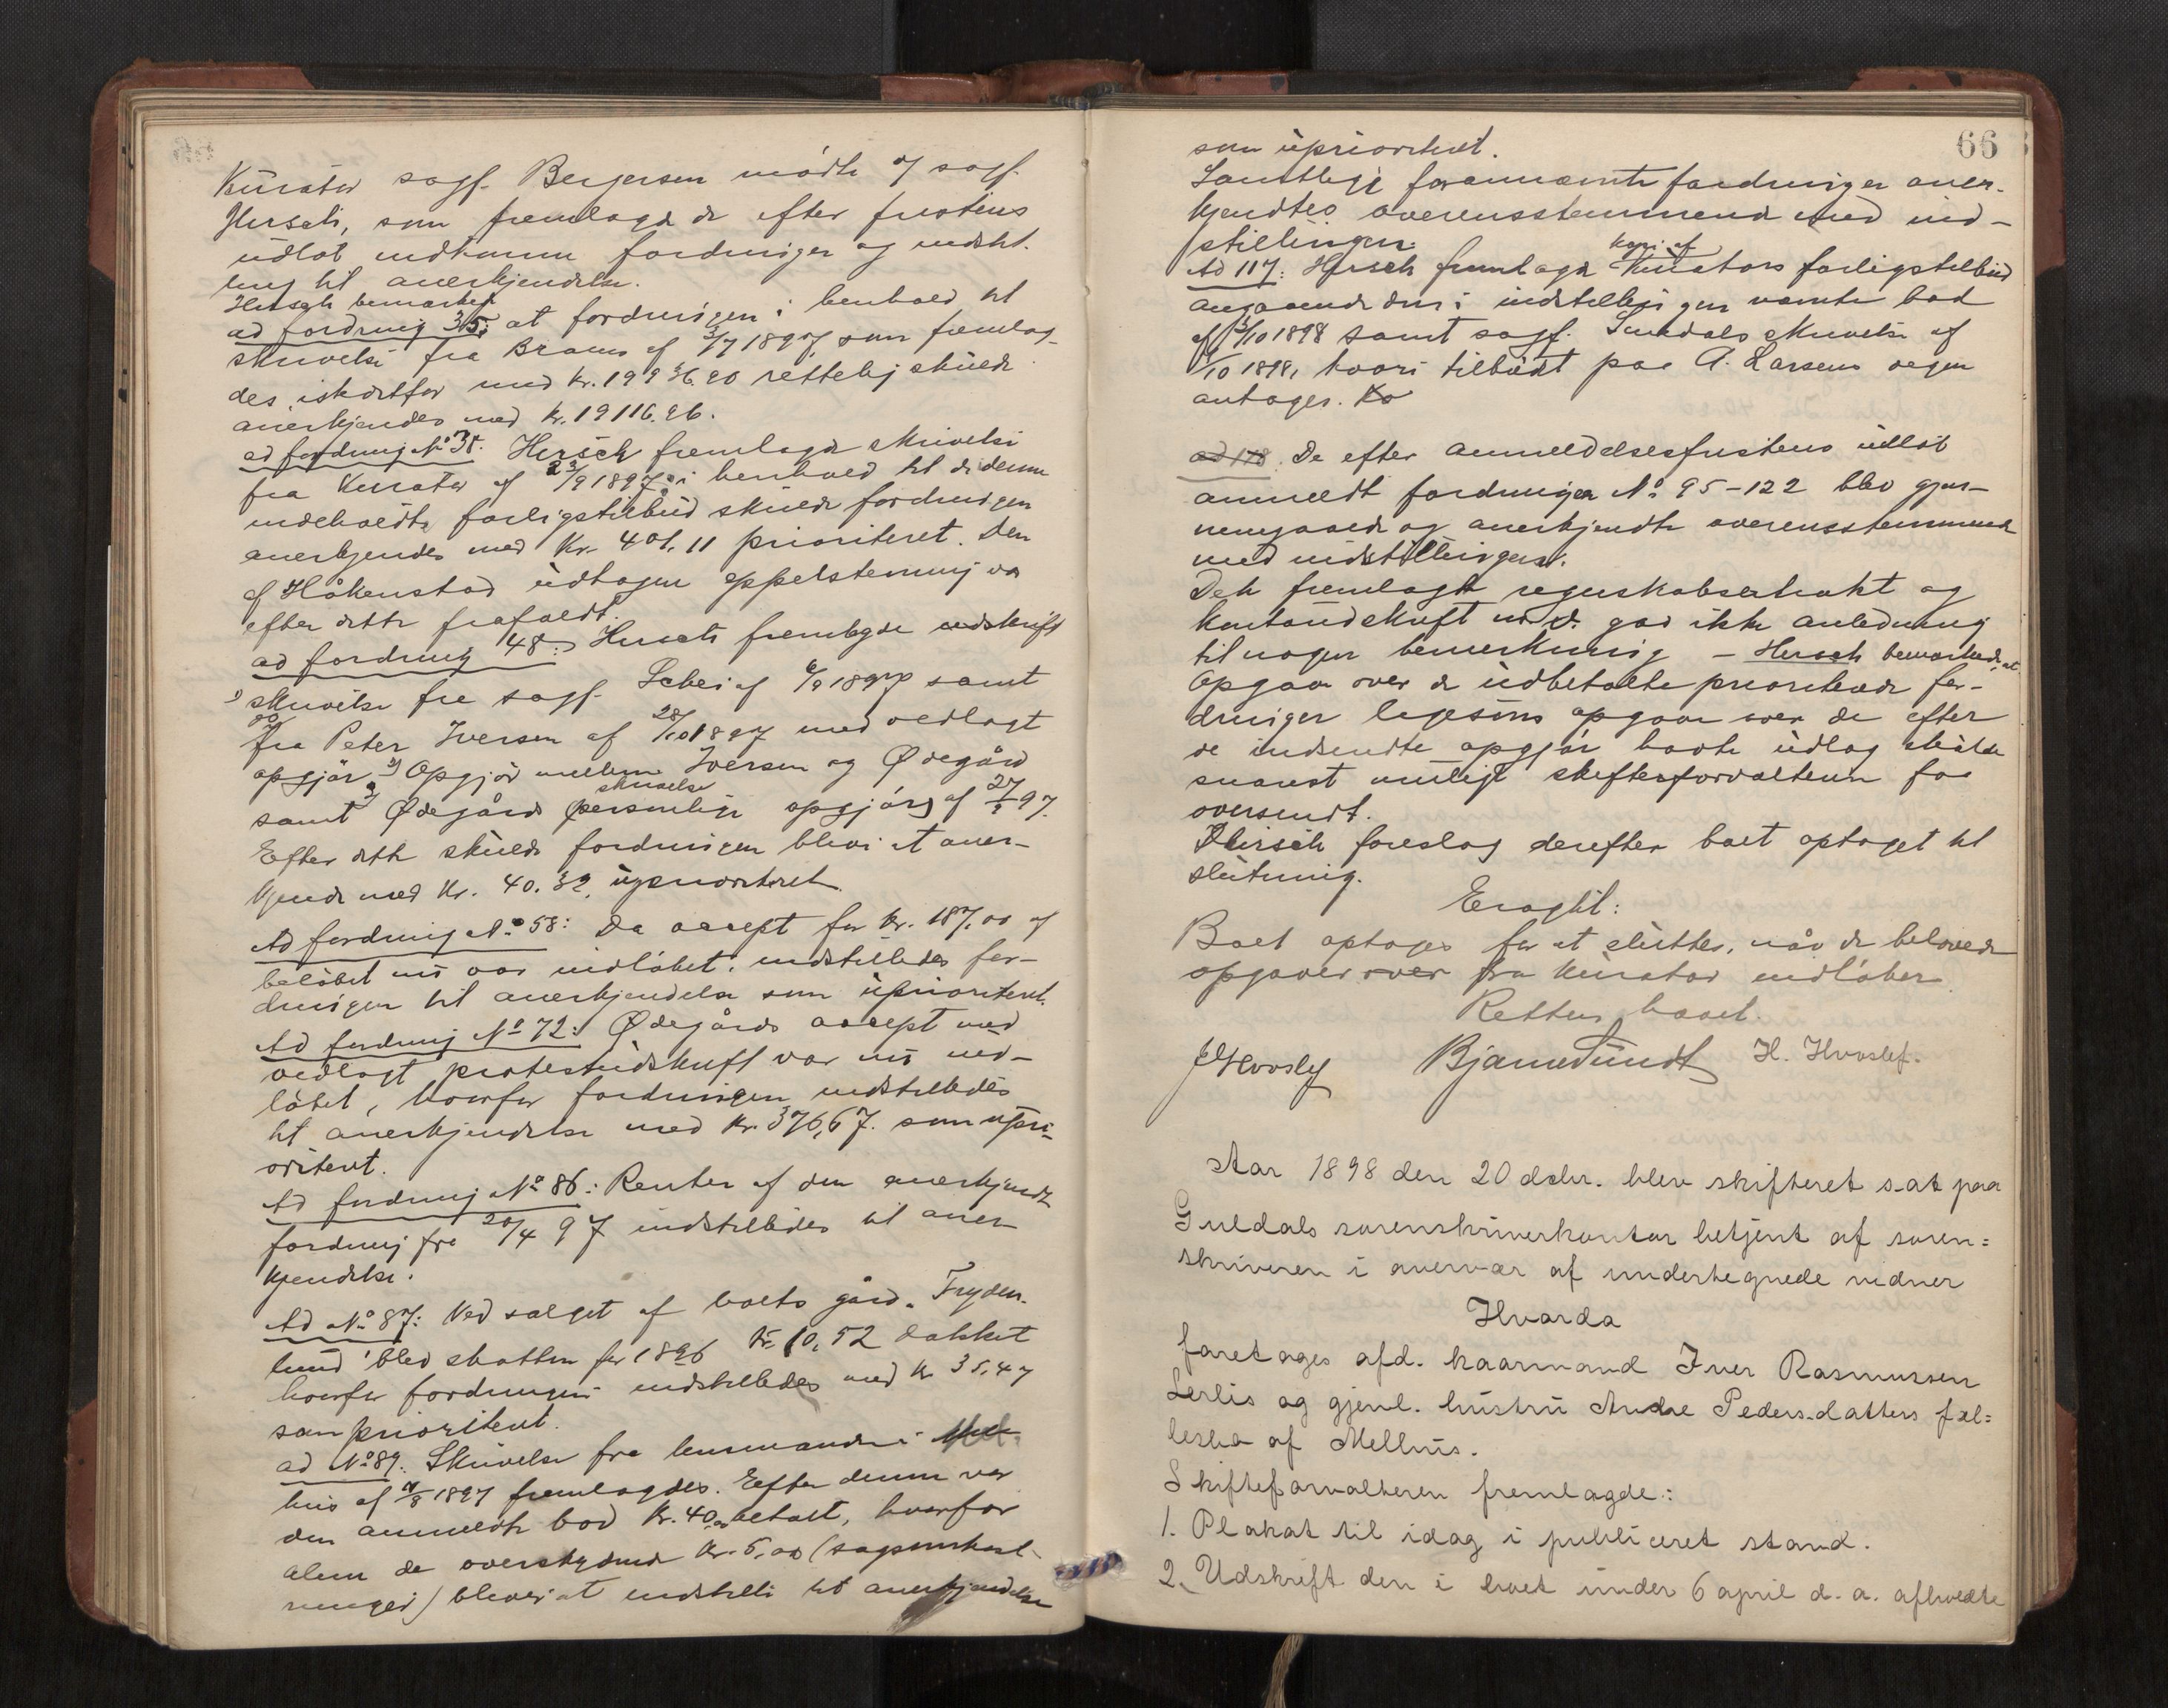 Kurator sagf. Bergersen mødte og sagf.
Hirsch, som fremlagde de efter fristens
udløb indkomne fordringer og indstil-
ling til anerkjendelse.
Hirsch bemærket
ad fordring 35: at fordringen i henhold til
skrivelse fra Braens af 3/7 1897, som fremlag-
des, istedetfor med kr. 19936.20 rettelig skulde
anerkjendes med kr. 19116.26.
ad fordring No 38. Hirsch fremlagde skrivelse
fra Kurator af 23/9 1897; i henhold til de denne
indeholdte forligstilbud skulde fordringen
anerkjendes med Kr. 401,11 prioriteret. Den
af Håkenstad udtagne appelstevning var
efter dette frafaldt.
ad fordring 48: Hirsch fremlagde udskrift
1) skrivelse fra sagf. Schei af 6/9 1897 samt
fra Peter Iversen af 28/10 1897 med vedlagt
opgjør 2) Opgjør mellem Iversen og Ødegård
samt 3) Ødegårds personlige skrivelse opgjør af 27/9 97.
Efter dette skulde fordringen blive at aner-
kjende med Kr. 40.32, uprioriteret.
Ad fordring No 58: Da accept for Kr. 187,00 af
beløbet nu var indløbet, indstilledes for-
dringen til anerkjendelse som uprioriteret.
Ad fordring No 72: Ødegårds accept med
vedlagt protestudskrift var nu ind-
løbet, hvorfor fordringen indstilledes
til anerkjendelse med Kr. 376,67. som upri-
oriteret.
Ad fordring No 86: Renter af den anerkjendte
fordring fra 20/4 97 indstilledes til aner-
kjendelse.
Ad No 87: Ved salget af boets gård Fryden-
lund blev skatten for 1896 Kr. 10,52 dækket
hvorfor fordringen indstilledes med Kr 35,47
som prioriteret.
ad No 89. Skrivelse fra lensmanden i Mel-
hus af 11/8 1897 fremlagdes. Efter denne var
den anmeldte bod Kr. 40,00 betalt, hvorfor
alene de overskydende Kr. 5,00 (sagsomkost-
ninger) bliver at indstille til anerkjendelse
66
som uprioriteret.
Samtlige forannævnte fordringer aner-
kjendtes overensstemmende med ind-
stillingen.
Ad 117: Hirsch fremlagde kopi af Kurators forligstilbud
angaaende den i indstillingen nævnte bod
af 3/10 1898 samt sagf. Sundals skrivelse af
/10 1898, hvori tilbudt paa A. Larsens vegne
antages. Ko
ad 118. De efter anmeldelsesfristens udløb
anmeldte fordringer No 95-122 blev gjen-
nemgaaede og anerkjendte overensstemmende
med indstillingen.
Det fremlagte regnskabsextrakt og
kontoudskrift m.d. gav ikke anledning
til nogen bemerkning - Hirsch bemærkede, at
Opgave over de udbetalte prioriterede for-
dringer ligesom opgave over de efter
de indsendte opgjør havte udlæg skulde
snarest muligt skifteforvalteren faa
oversendt.
Hirsch foreslog derefter boet optaget til
slutning.
Eragtet:
Boet optages for at sluttes, når de belovede
opgaver over fra Kurator indløber.
Retten hævet.
JHvoslef Bjarne Sundt H. Hvoslef.
Aar 1898 den 20 decbr. blev skifteret sat paa
Guldals sorenskriverkontor betjent af soren=
skriveren i overvær af undertegnede vidner
Hvorda
foretages afd. kaarmand Iver Rasmussen
Lerlis og gjenl. hustru Andre Pedersdatters fæl=
lesbo af Melhus.
Skifteforvalteren fremlagde:
1. Plakat til idag i publiceret stand.
2. Udskrift den i boet under 6 april d. a. afholdte